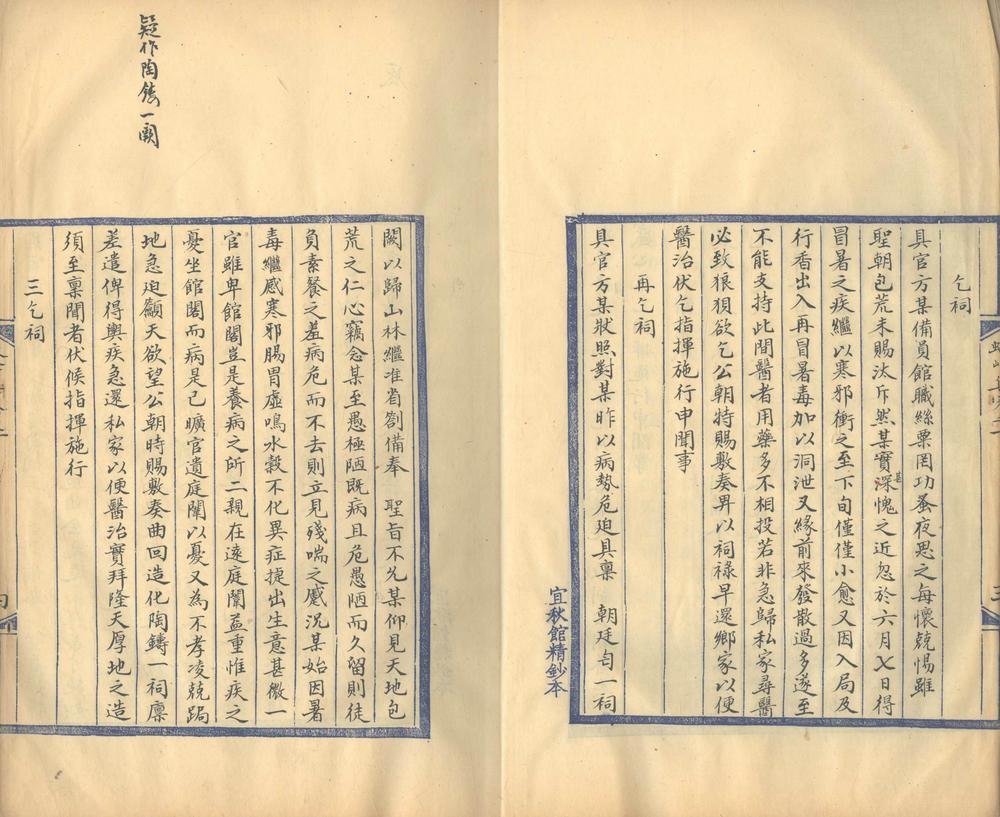 乞祠
具官方某備員館職絲粟罔功蚤夜思之每懷兢惕雖
聖朝包荒未賜汰斥然某實深愧之近忽於六月七日得
甚
冒暑之疾繼以寒邪衝之至下旬僅僅小愈又因入局及
行香出入再冒暑毒加以洞泄又緣前來發散過多遂至
不能支持此間醫者用藥多不相投若非急歸私家尋醫
必致狼狽欲乞公朝特賜敷奏畀以祠祿早還鄉家以便
醫治伏乞指揮施行申聞事
再乞祠
具官方某狀照對某昨以病勢危迫具稟 朝廷匄一祠
宜秋館精鈔本
闕以歸山林繼准省劄備奉 聖旨不允某仰見天地包
荒之仁心竊念某至愚極陋既病且危愚陋而久留則徒
負素餐之羞病危而不去則立見殘喘之慼況某始因暑
毒繼感寒邪腸胃虛鳴水穀不化異症捷出生意甚微一
官雖卑館閣豈是養病之所二親在遠庭闈益重惟疾之
憂坐館閣而病是已曠官遺庭闈以憂又為不孝凌兢跼
地急迫顲天欲望公朝時賜敷奏曲回造化陶鑄一祠廩
差遣俾得輿疾急還私家以便醫治實拜隆天厚地之造
須至稟聞者伏候指揮施行
三乞祠
疑作陶鑄一闕